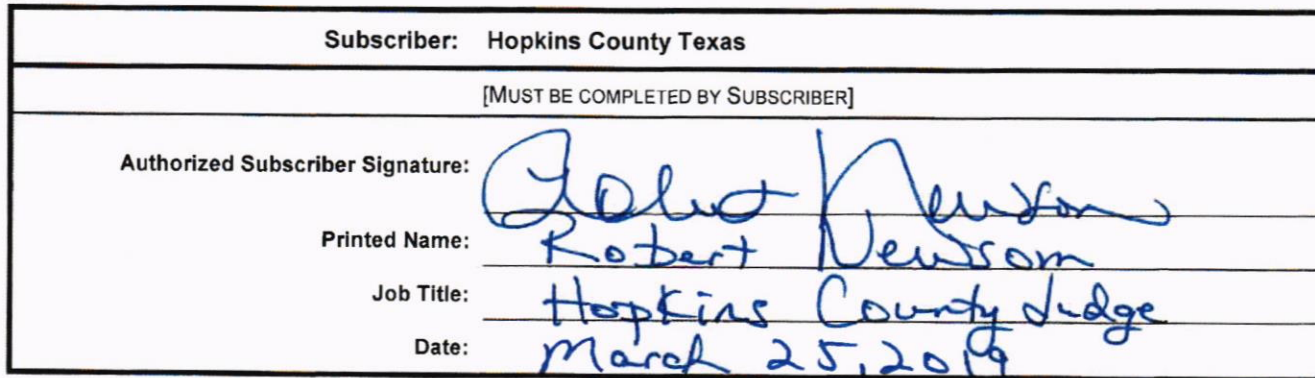 Subscriber: Hopkins County Texas
[MUST BE COMPLETED BY SUBSCRIBER]
Authorized Subscriber Signature: Robert Newsom
Printed Name: Robert Newsom
Job Title: Hopkins County Judge
Date: March 25, 2019